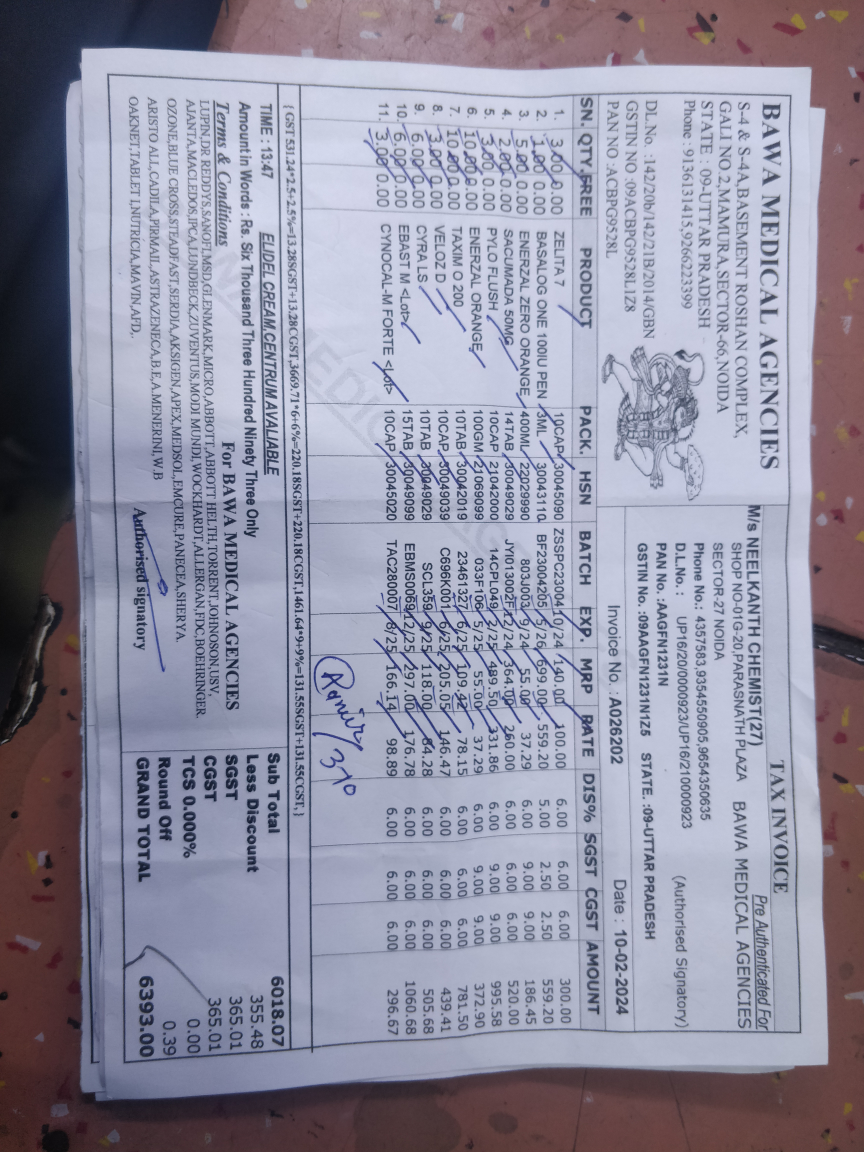 TAX INVOICE
BAWA MEDICAL AGENCIES
S-4 & S-4A,BASEMENT ROSHAN COMPLEX,
GALI NO 2,MAMURA,SECTOR-66,NOIDA
STATE : 09-UTTAR PRADESH
Phone : 9136131415,9266223399
DL.No. :142/20B/142/21B/2014/GBN
GSTIN NO :09ACBPG9528L1Z8
PAN NO :ACBPG9528L
Pre Authenticated For
M/s NEELKANTH CHEMIST(27)
SHOP NO-01G-20,PARASNATH PLAZA BAWA MEDICAL AGENCIES
SECTOR-27 NOIDA
Phone No.: 4357583,9354550905,9654350635
D.L.No. : UP16/20/0000923/UP16/210000923 (Authorised Signatory)
PAN No. :AAGFN1231N
GSTIN No. :09AAGFN1231N1Z5 STATE. :09-UTTAR PRADESH
Invoice No. : A026202 Date : 10-02-2024
SN. QTY.FREE PRODUCT PACK. HSN BATCH EXP. MRP RATE DIS% SGST CGST AMOUNT
1. 3.00 0.00 ZELITA 7 10CAP 30045090 ZSSPC23004 10/24 140.00 100.00 6.00 6.00 6.00 300.00
2. 1.00 0.00 BASALOG ONE 100IU PEN 3ML 30043110 BF23004205 5/26 699.00 559.20 5.00 2.50 2.50 559.20
3. 5.00 0.00 ENERZAL ZERO ORANGE 400ML 22029990 803J003 9/24 55.00 37.29 6.00 9.00 9.00 186.45
4. 2.00 0.00 SACUMADA 50MG 14TAB 30049029 12/24 364.00 260.00 6.00 6.00 6.00 520.00
5. 3.00 0.00 PYLO FLUSH 10CAP 21042000 14CPL049 2/25 489.50 331.86 6.00 9.00 9.00 995.58
6. 10.00 0.00 ENERZAL ORANGE 100GM 21069099 033F106 5/25 55.00 37.29 6.00 9.00 9.00 372.90
7. 10.00 0.00 TAXIM O 200 10TAB 30042019 23461327 6/25 109.42 78.15 6.00 6.00 6.00 781.50
8. 3.00 0.00 VELOZ D 10CAP 30049039 C696K001 6/25 205.05 146.47 6.00 6.00 6.00 439.41
9. 6.00 0.00 CYRA LS 10TAB 30049029 SCL359 9/25 118.00 84.28 6.00 6.00 6.00 505.68
10. 6.00 0.00 EBAST M <Lot> 15TAB 30049099 EBMS0069 12/25 297.00 176.78 6.00 6.00 6.00 1060.68
11. 3.00 0.00 CYNOCAL-M FORTE <Lot> 10CAP 30045020 TAC280007 8/25 166.14 98.89 6.00 6.00 6.00 296.67
{ GST 531.24*2.5+2.5%=13.28SGST+13.28CGST,3669.71*6+6%=220.18SGST+220.18CGST,1461.64*9+9%=131.55SGST+131.55CGST,}
TIME : 13:47 ELIDEL CREAM,CENTRUM AVALIABLE
Amount in Words : Rs. Six Thousand Three Hundred Ninety Three Only
Terms & Conditions For BAWA MEDICAL AGENCIES
LUPIN,DR REDDYS,SANOFI,MSD,GLENMARK,MICRO,ABBOTT,ABBOTT HELTH,TORRENT,JOHNSON,USV,
AJANTA,MACLEDOS,IPCA,LUNDBECK,ZUVENTUS,MODI MUNDI,WOCKHARDT,ALLERGAN,FDC,BOEHRINGER
OZONE,BLUE CROSS,STEADFAST,SERDIA,AKSIGEN,APEX,MEDSOL,EMCURE,PANECEA,SHERYA.
ARISTO ALL,CADILA,PIRMAIL,ASTRAZENECA,B.E,A.MENERINI,W.B
OAKNET,TABLET I,NUTRICIA,MAVIN,AFD,.
Authorised signatory
Sub Total 6018.07
Less Discount 355.48
SGST 365.01
CGST 365.01
TCS 0.000% 0.00
Round Off 0.39
GRAND TOTAL 6393.00